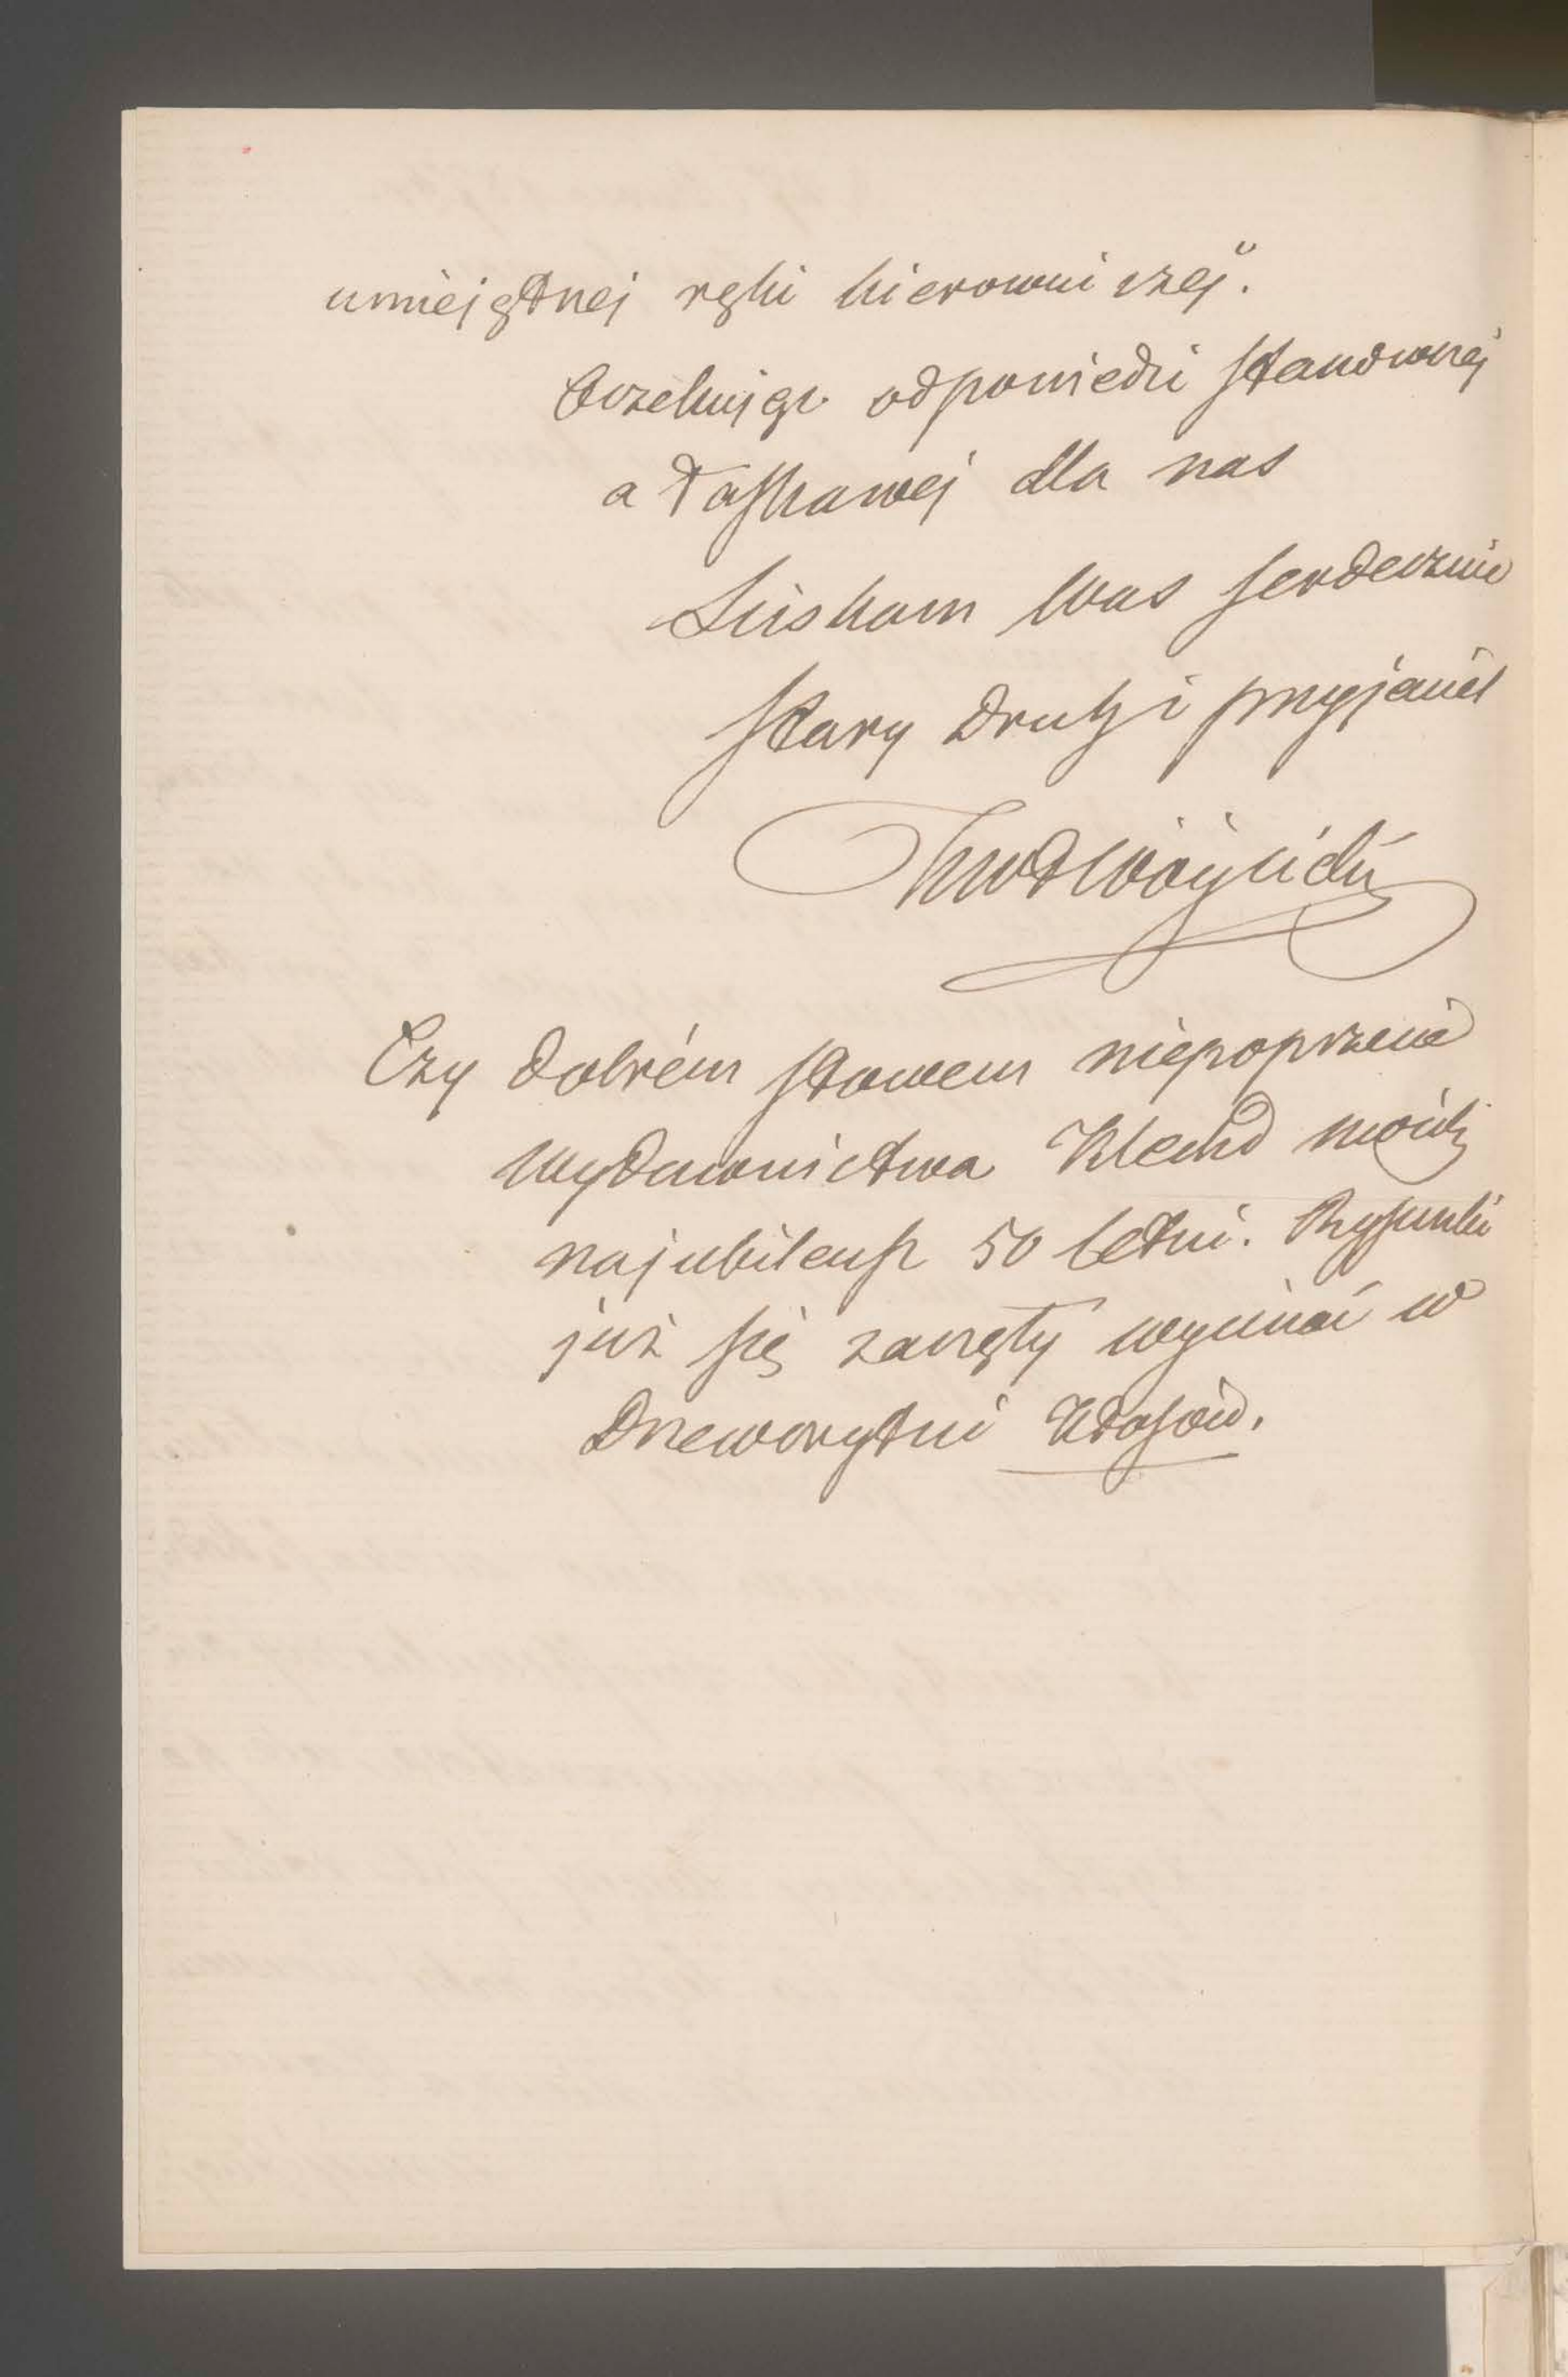 umiejętnej ręki kierowniczej".
Oczekując odpowiedzi stanowczej
a łaskawej dla nas
Sciskam Was serdecznie
Stary druh i przyjaciel
KWł Wójcicki
Czy dobrém słowem niepoprzecie
wydawnictwa Klechd moich
na jubileusz 50 letni. Rysunki
już się zaczęły wycinać w
Drzeworytni Kłosów.